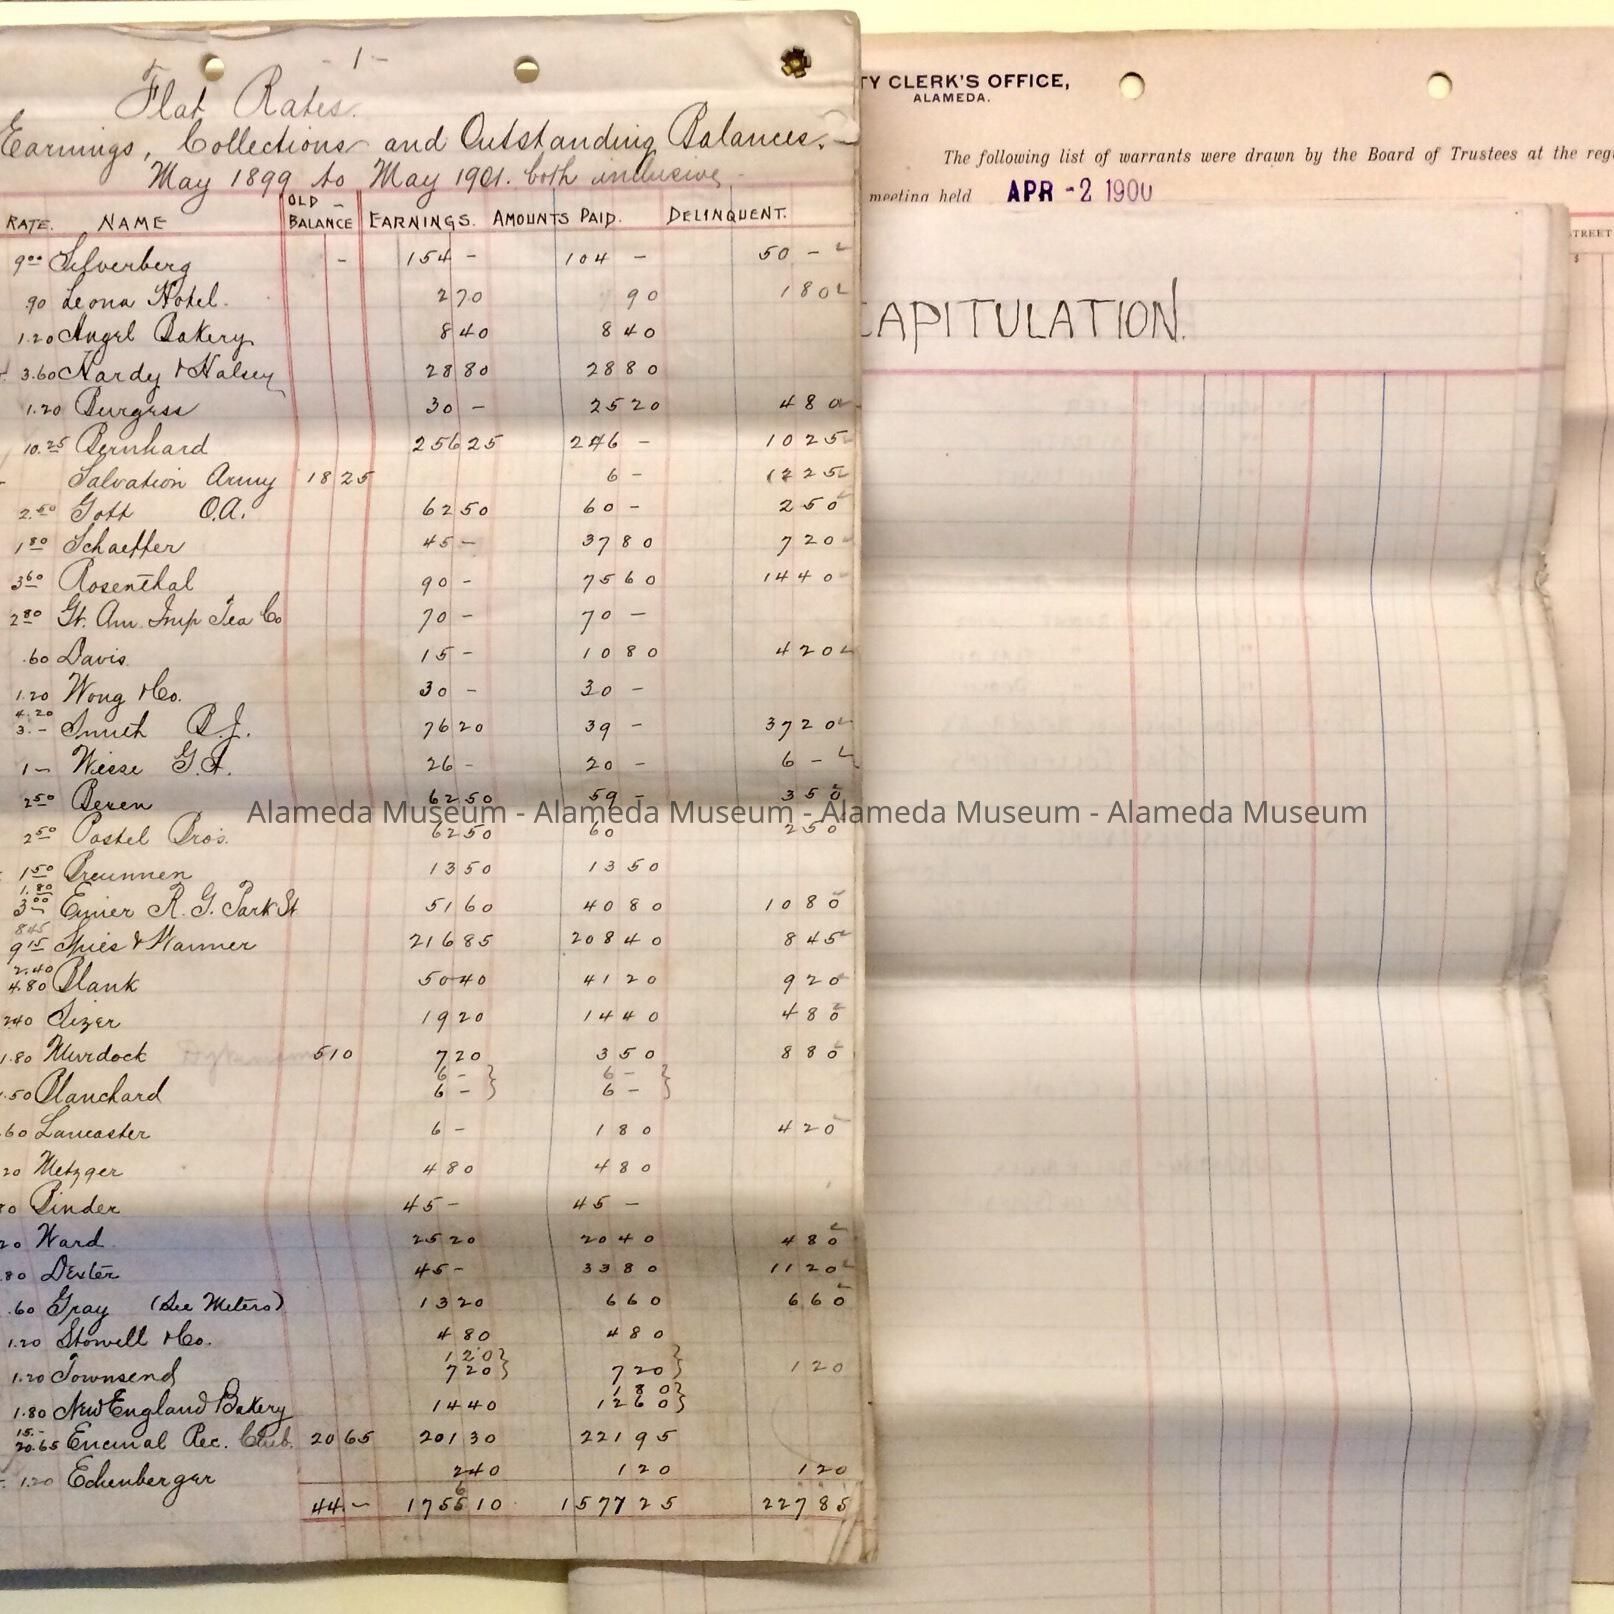 - 1 -
Flat Rates.
Earnings, Collections and Outstanding Balances.
May 1899 to May 1901. both inclusive -
RATE. NAME OLD - BALANCE EARNINGS. AMOUNTS PAID. DELINQUENT.
9 00 Silverberg - 154 - 104 - 50 -
.90 Leona Hotel. 2 70 90 1 80
1.20 Angel Bakery 8 40 8 40
3.60 Hardy & Halsey 28 80 28 80
1.20 Burgess 30 - 25 20 4 80
10.25 Bernhard 256 25 246 - 10 25
Salvation Army 18 25 6 - 12 25
2.50 Gott O.A. 62 50 60 - 2 50
1 80 Schaeffer 45 - 37 80 7 20
3 60 Rosenthal 90 - 75 60 14 40
2 80 Gt. Am. Imp Tea Co 70 - 70 -
.60 Davis 15 - 10 80 4 20
1.20 Wong & Co. 30 - 30 -
4.20
3.- Smith R.J. 76 20 39 - 37 20
1 - Wiese G.A. 26 - 20 - 6 -
2 50 62 50 59 - 3 50
Alameda Museum - Alameda Museum - Alameda Museum - Alameda Museum
2 50 Postel Bros. 62 50 60 2 50
1 50 Breunnen 13 50 13 50
1.80
3 00 R. G. Park St. 51 60 40 80 10 80
8 45
9 15 Spies & Warmer 216 85 208 40 8 45
2.40
4.80 Blank 50 40 41 20 9 20
2 40 Sizer 19 20 14 40 4 80
1.80 Murdock 5 10 7 20 3 50 8 80
6 - } 6 - }
.50 Blanchard 6 - } 6 - }
.60 Lancaster 6 - 1 80 4 20
20 Metzger 4 80 4 80
80 Binder 45 - 45 -
20 Ward 25 20 20 40 4 80
.80 Dexter 45 - 33 80 11 20
.60 Gray (See Meters) 13 20 6 60 6 60
1.20 Stowell & Co. 4 80 4 80
1 20 }
1.20 Townsend 7 20 } 7 20 } 1 20
1 80 }
1.80 New England Bakery 14 40 12 60 }
15.-
20.65 Encinal Rec. Club. 20 65 201 30 221 95
1.20 Echenberger 2 40 1 20 1 20
6
44 - 1755 10 1577 25 227 85
TY CLERK'S OFFICE,
ALAMEDA.
The following list of warrants were drawn by the Board of Trustees at the reg
meeting held APR -2 1900
TREET
$
CAPITULATION.